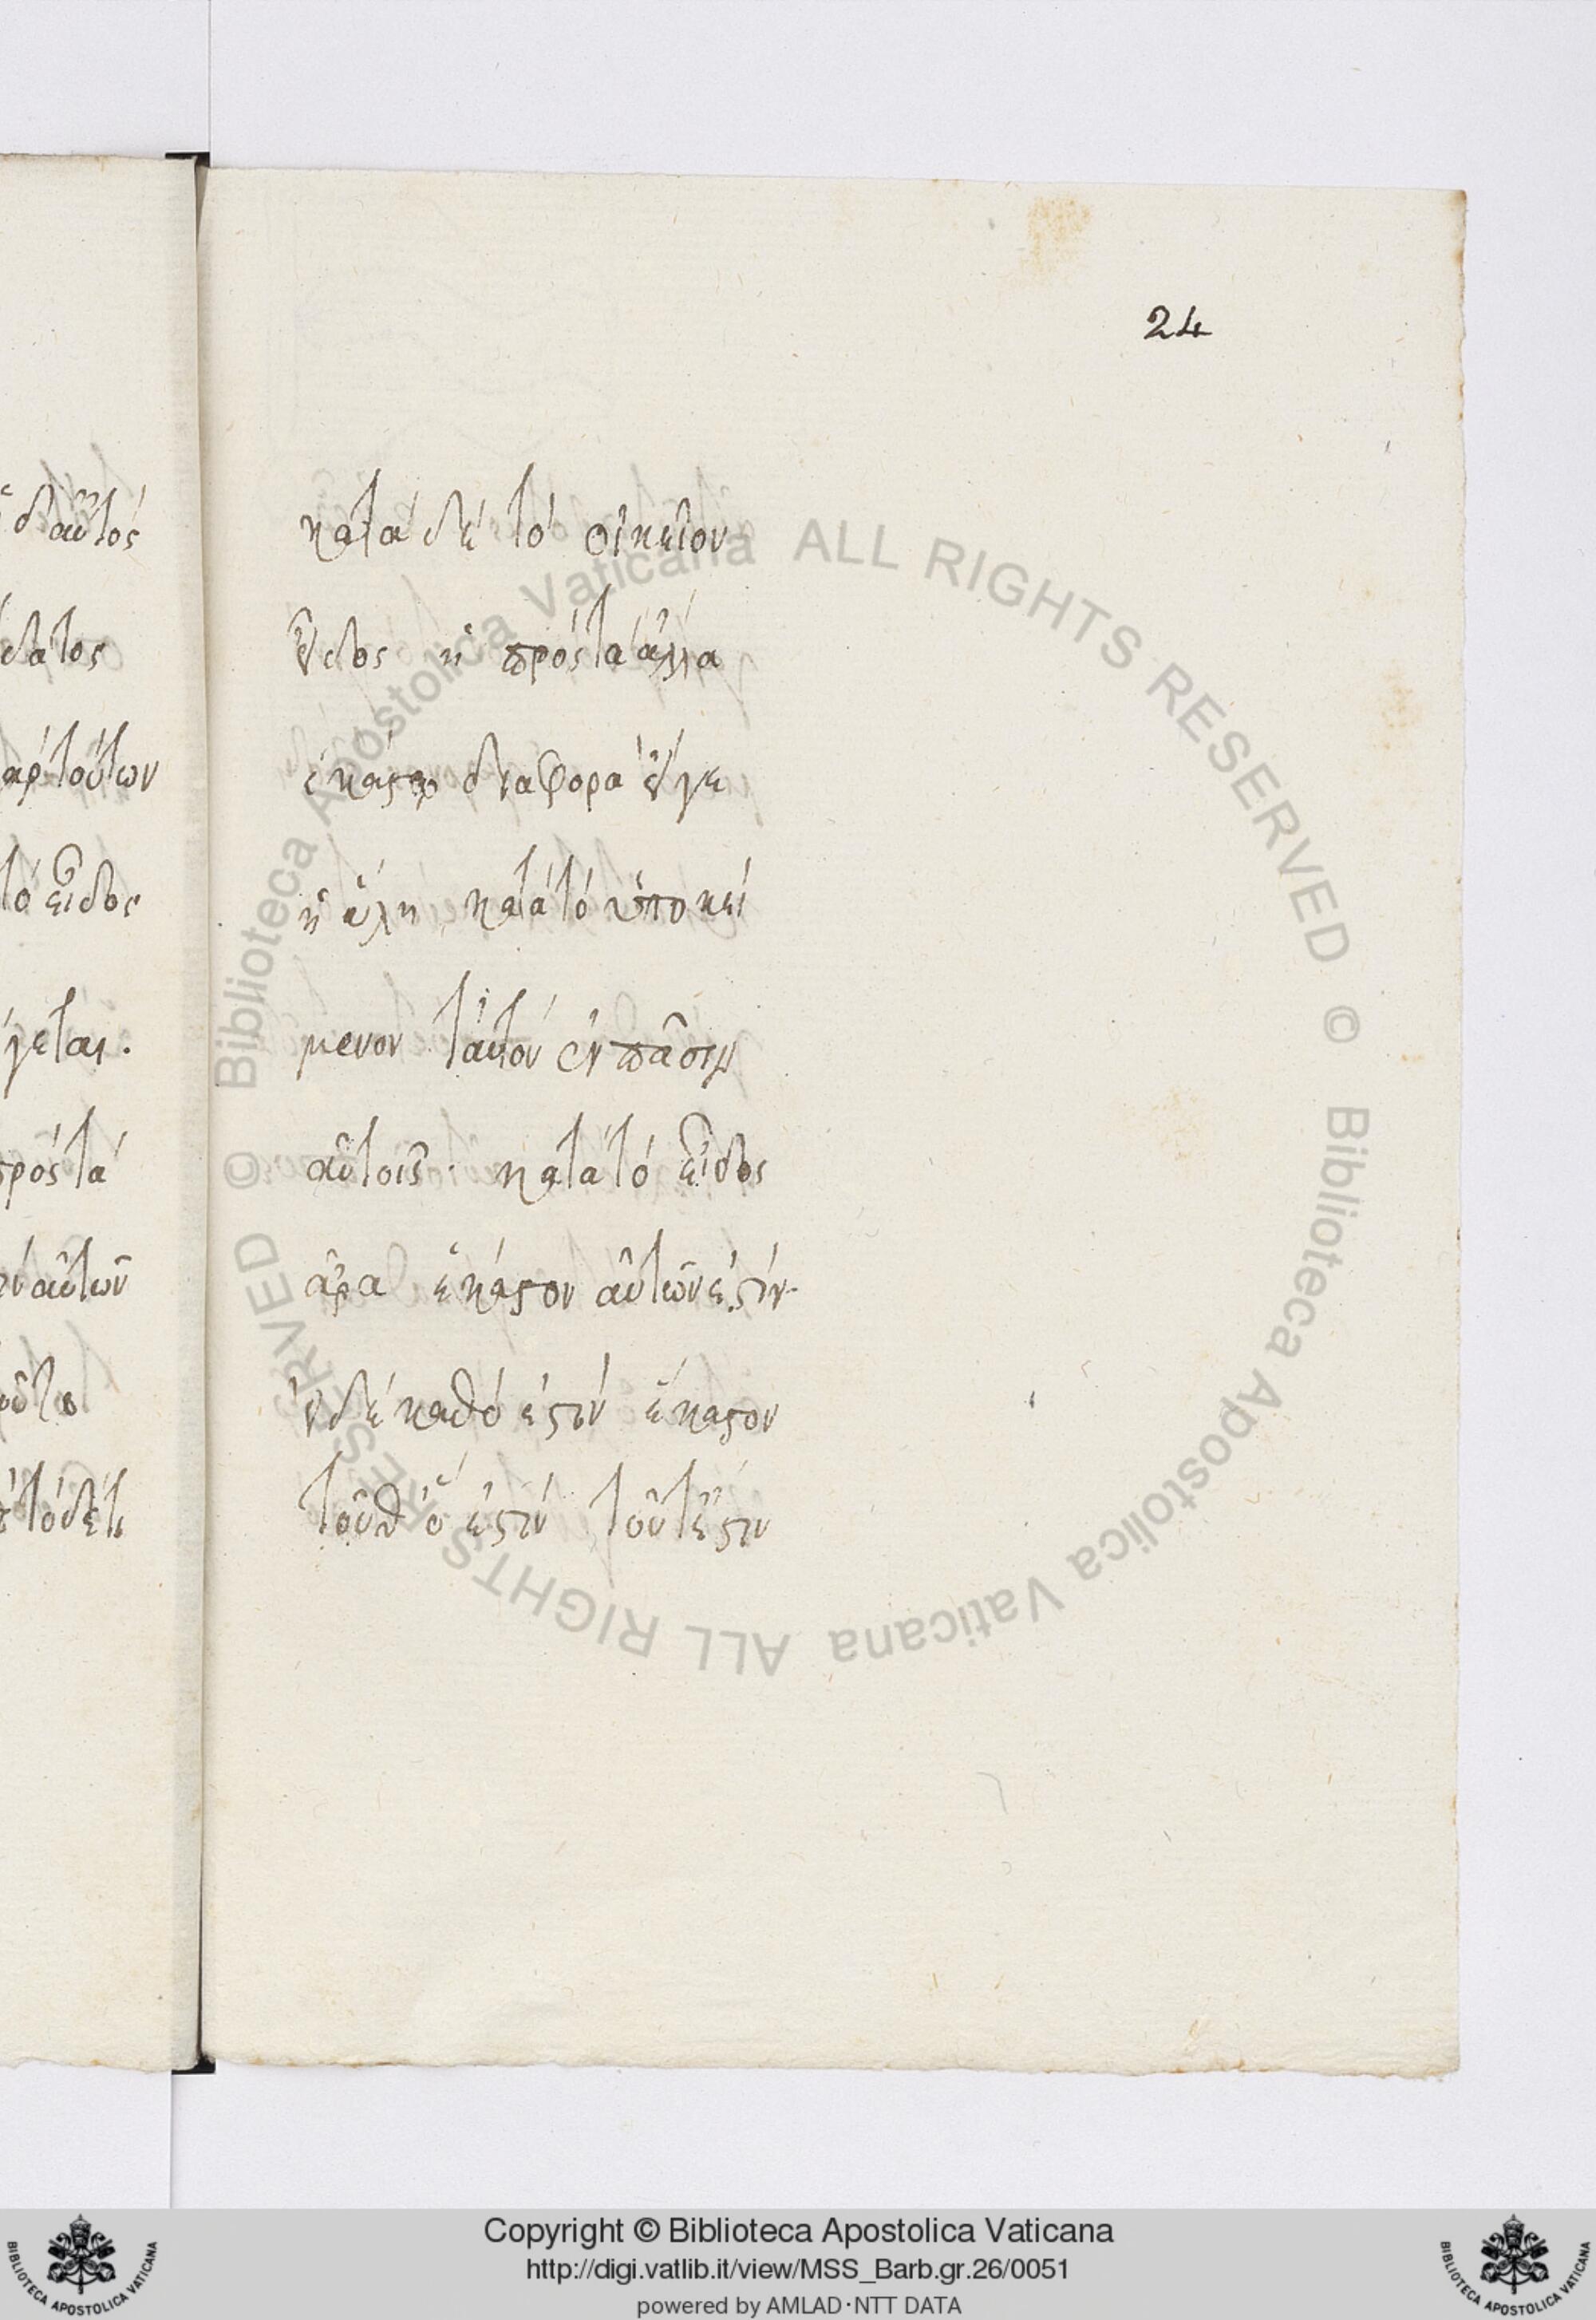 24
δ' αὐτὸς
κατὰ δὲ τὸ οἰκεῖον
δατος
εἶδος ἡ πρὸς τὰ ἄλλα
γὰρ τούτων
ἑκάστῳ διαφορὰ εἴγε
τὸ εἶδος
ἡ ὕλη κατὰ τὸ ὑποκεί
γεται.
μενον ταὐτὸν ἐν πᾶσιν
πρὸς τὰ
αὐτοῖς· κατὰ τὸ εἶδος
αὐτῶν
ἄρα ἕκάστον αὐτῶν ἐστίν·
ἐν δὲ καθό ἐστιν ἕκαστον
τοῦθ' ὅ ἐστιν τοῦτ' ἔστιν
© Biblioteca Apostolica Vaticana ALL RIGHTS RESERVED © Biblioteca Apostolica Vaticana ALL RIGHTS RESERVED
Copyright © Biblioteca Apostolica Vaticana
http://digi.vatlib.it/view/MSS_Barb.gr.26/0051
powered by AMLAD·NTT DATA
BIBLIOTECA APOSTOLICA VATICANA
BIBLIOTECA APOSTOLICA VATICANA